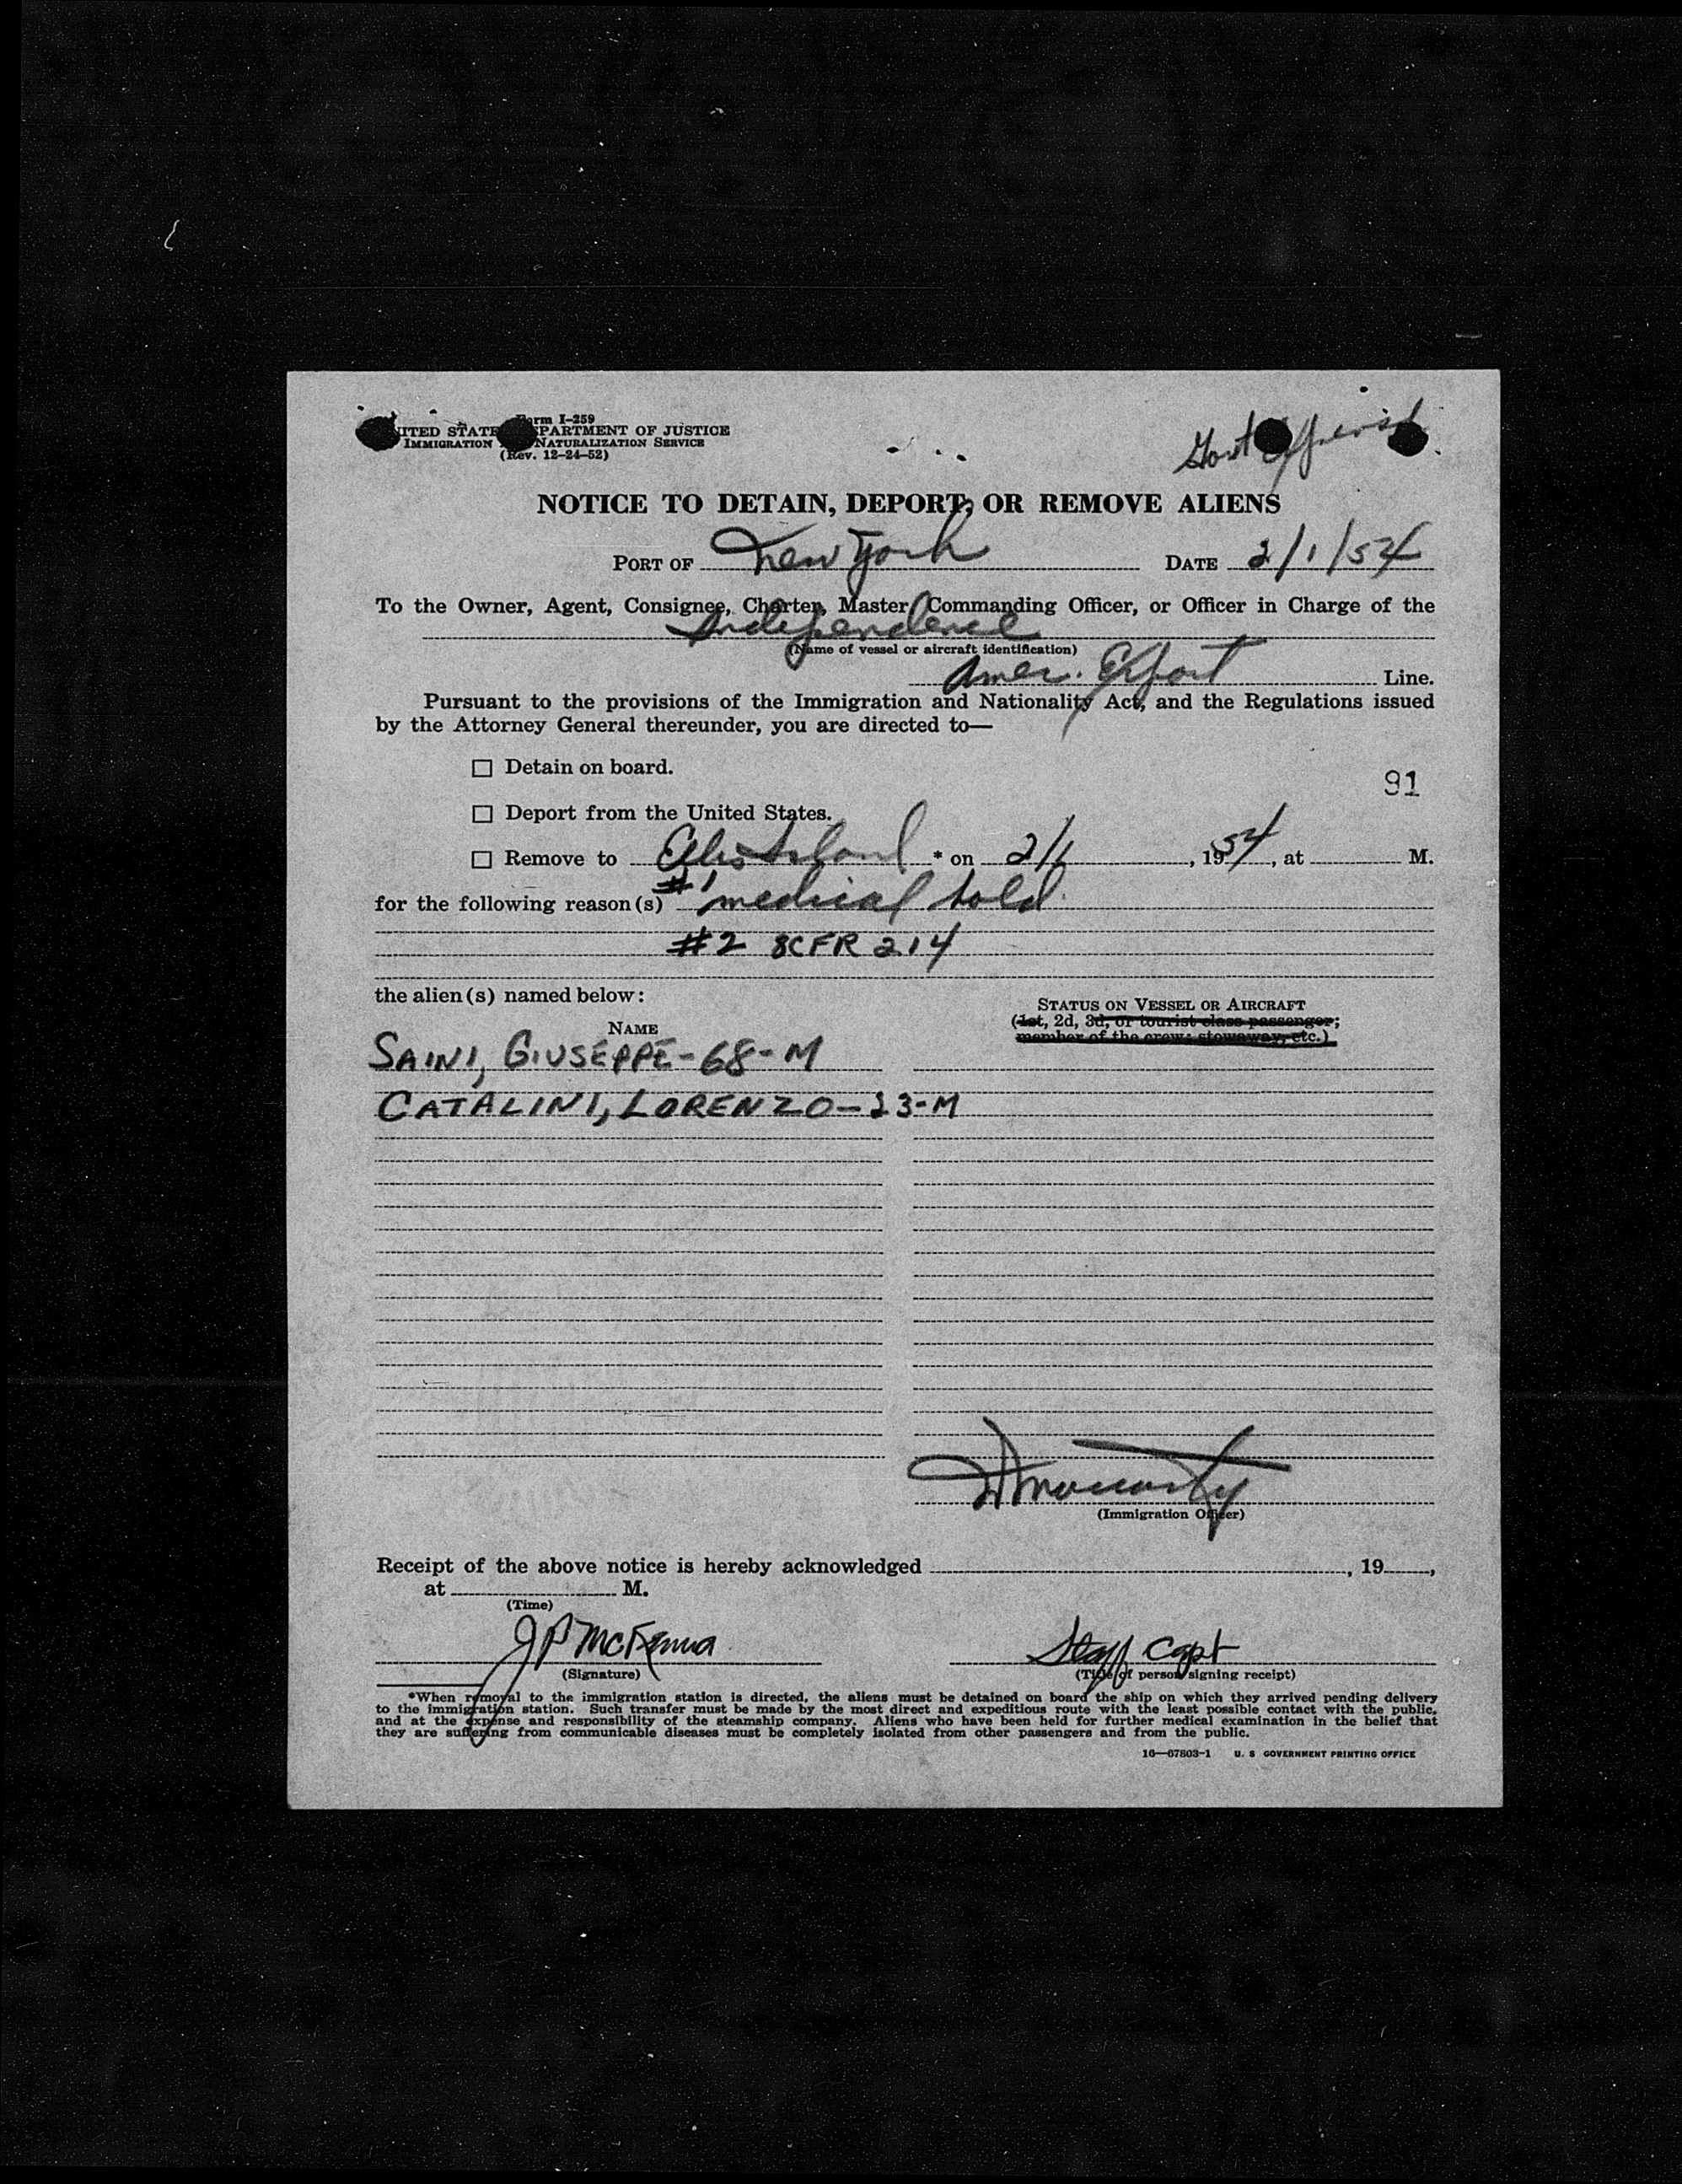 Form I-259
UNITED STATES DEPARTMENT OF JUSTICE
IMMIGRATION NATURALIZATION SERVICE
(Rev. 12-24-52)
Govt
NOTICE TO DETAIN, DEPORT, OR REMOVE ALIENS
PORT OF New York DATE 2/1/54
To the Owner, Agent, Consignee, Charter, Master, Commanding Officer, or Officer in Charge of the
Independence
(Name of vessel or aircraft identification)
Amer. Export Line.
Pursuant to the provisions of the Immigration and Nationality Act, and the Regulations issued
by the Attorney General thereunder, you are directed to—
☐ Detain on board.
91
☐ Deport from the United States.
☐ Remove to Ellis Island * on 2/1, 1954, at M.
for the following reason(s) #1 medical hold
#2 8CFR 214
the alien(s) named below:
STATUS ON VESSEL OR AIRCRAFT
(1st, 2d, 3d, or tourist class passenger;
member of the crew; stowaway, etc.)
NAME
SAINI, GIUSEPPE-68-M
CATALINI, LORENZO-23-M
(Immigration Officer)
Receipt of the above notice is hereby acknowledged , 19 ,
at M.
(Time)
JP McKenna Staff Capt
(Signature) (Title of person signing receipt)
*When removal to the immigration station is directed, the aliens must be detained on board the ship on which they arrived pending delivery
to the immigration station. Such transfer must be made by the most direct and expeditious route with the least possible contact with the public,
and at the expense and responsibility of the steamship company. Aliens who have been held for further medical examination in the belief that
they are suffering from communicable diseases must be completely isolated from other passengers and from the public.
16—67803-1 U. S GOVERNMENT PRINTING OFFICE